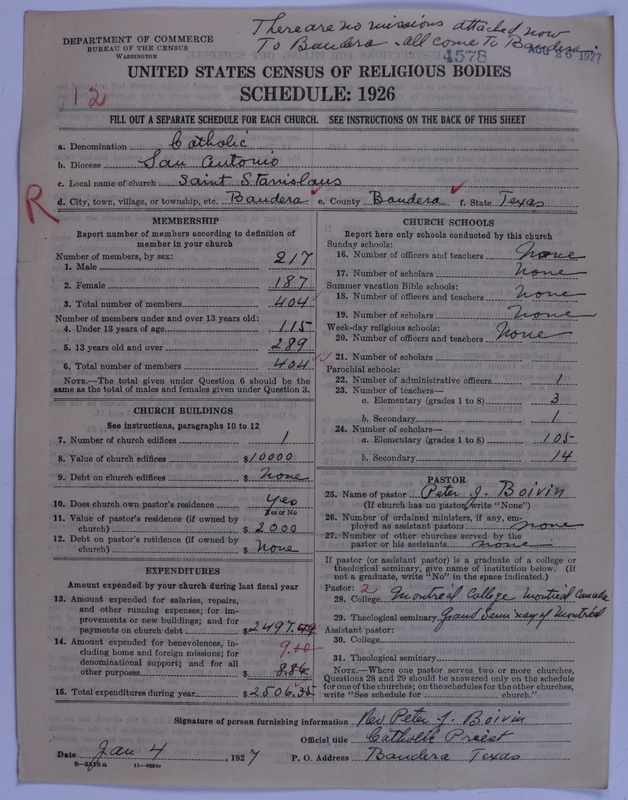 There are no missions attached now
To Bandera. All come To Bandera.
DEPARTMENT OF COMMERCE
BUREAU OF THE CENSUS
WASHINGTON
4578
AUG 26 1927
UNITED STATES CENSUS OF RELIGIOUS BODIES
SCHEDULE: 1926
12
FILL OUT A SEPARATE SCHEDULE FOR EACH CHURCH. SEE INSTRUCTIONS ON THE BACK OF THIS SHEET
a. Denomination Catholic
b. Diocese San Antonio
c. Local name of church Saint Stanislaus
d. City, town, village, or township, etc. Bandera e. County Bandera f. State Texas
R
MEMBERSHIP
Report number of members according to definition of
member in your church
Number of members, by sex:
1. Male 217
2. Female 187
3. Total number of members 404
Number of members under and over 13 years old:
4. Under 13 years of age 115
5. 13 years old and over 289
6. Total number of members 404
NOTE.—The total given under Question 6 should be
same as the total of males and females given under Question 3.
CHURCH BUILDINGS
See instructions, paragraphs 10 to 12
7. Number of church edifices 1
8. Value of church edifices $10000
9. Debt on church edifices $ None
10. Does church own pastor's residence? Yes
Yes or No
11. Value of pastor's residence (if owned by
church) $ 2000
12. Debt on pastor's residence (if owned by
church) $ None
EXPENDITURES
Amount expended by your church during last fiscal year
13. Amount expended for salaries, repairs,
and other running expenses; for im-
provements or new buildings; and for
payments on church debt $2497.
14. Amount expended for benevolences, in-
cluding home and foreign missions; for
denominational support; and for all
other purposes $
15. Total expenditures during year $2506.
CHURCH SCHOOLS
Report here only schools conducted by this church
Sunday schools:
16. Number of officers and teachers None
17. Number of scholars None
Summer vacation Bible schools:
18. Number of officers and teachers None
19. Number of scholars None
Week-day religious schools:
20. Number of officers and teachers None
21. Number of scholars
Parochial schools:
22. Number of administrative officers 1
23. Number of teachers—
a. Elementary (grades 1 to 8) 3
b. Secondary 1
24. Number of scholars—
a. Elementary (grades 1 to 8) 105
b. Secondary 14
PASTOR
25. Name of pastor Peter J. Boivin
(If church has no pastor, write "None")
26. Number of ordained ministers, if any, em-
ployed as assistant pastors none
27. Number of other churches served by the
pastor or his assistants none
If pastor (or assistant pastor) is a graduate of a college or
theological seminary, give name of institution below. (If
not a graduate, write "No" in the space indicated.)
Pastor: 2
28. College Montreal College Montreal Canada
29. Theological seminary Grand Seminary of Montreal
Assistant pastor:
30. College
31. Theological seminary
NOTE.—Where one pastor serves two or more churches,
Questions 28 and 29 should be answered only on the schedule
for one of the churches; on the schedules for the other churches,
write "See schedule for church."
Signature of person furnishing information Rev. Peter J. Boivin
Official title Catholic Priest
Date Jan 4, 1927
P. O. Address Bandera Texas